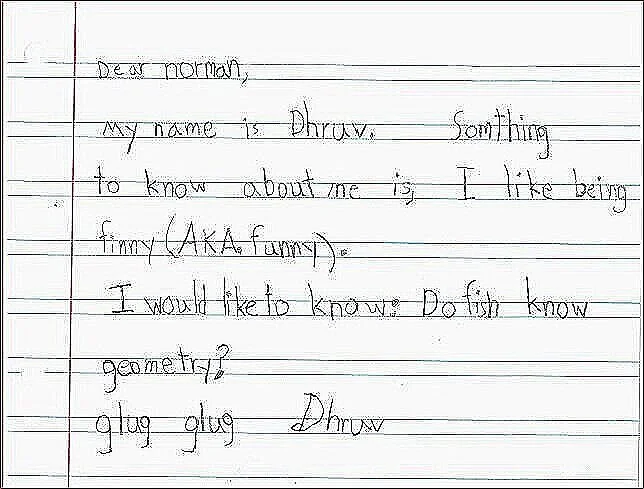 Dear norman,
My name is Dhruv. Somthing
to know about me is, I like being
finny (AKA. funny).
I would like to know: Do fish know
geometry?
glug glug Dhruv